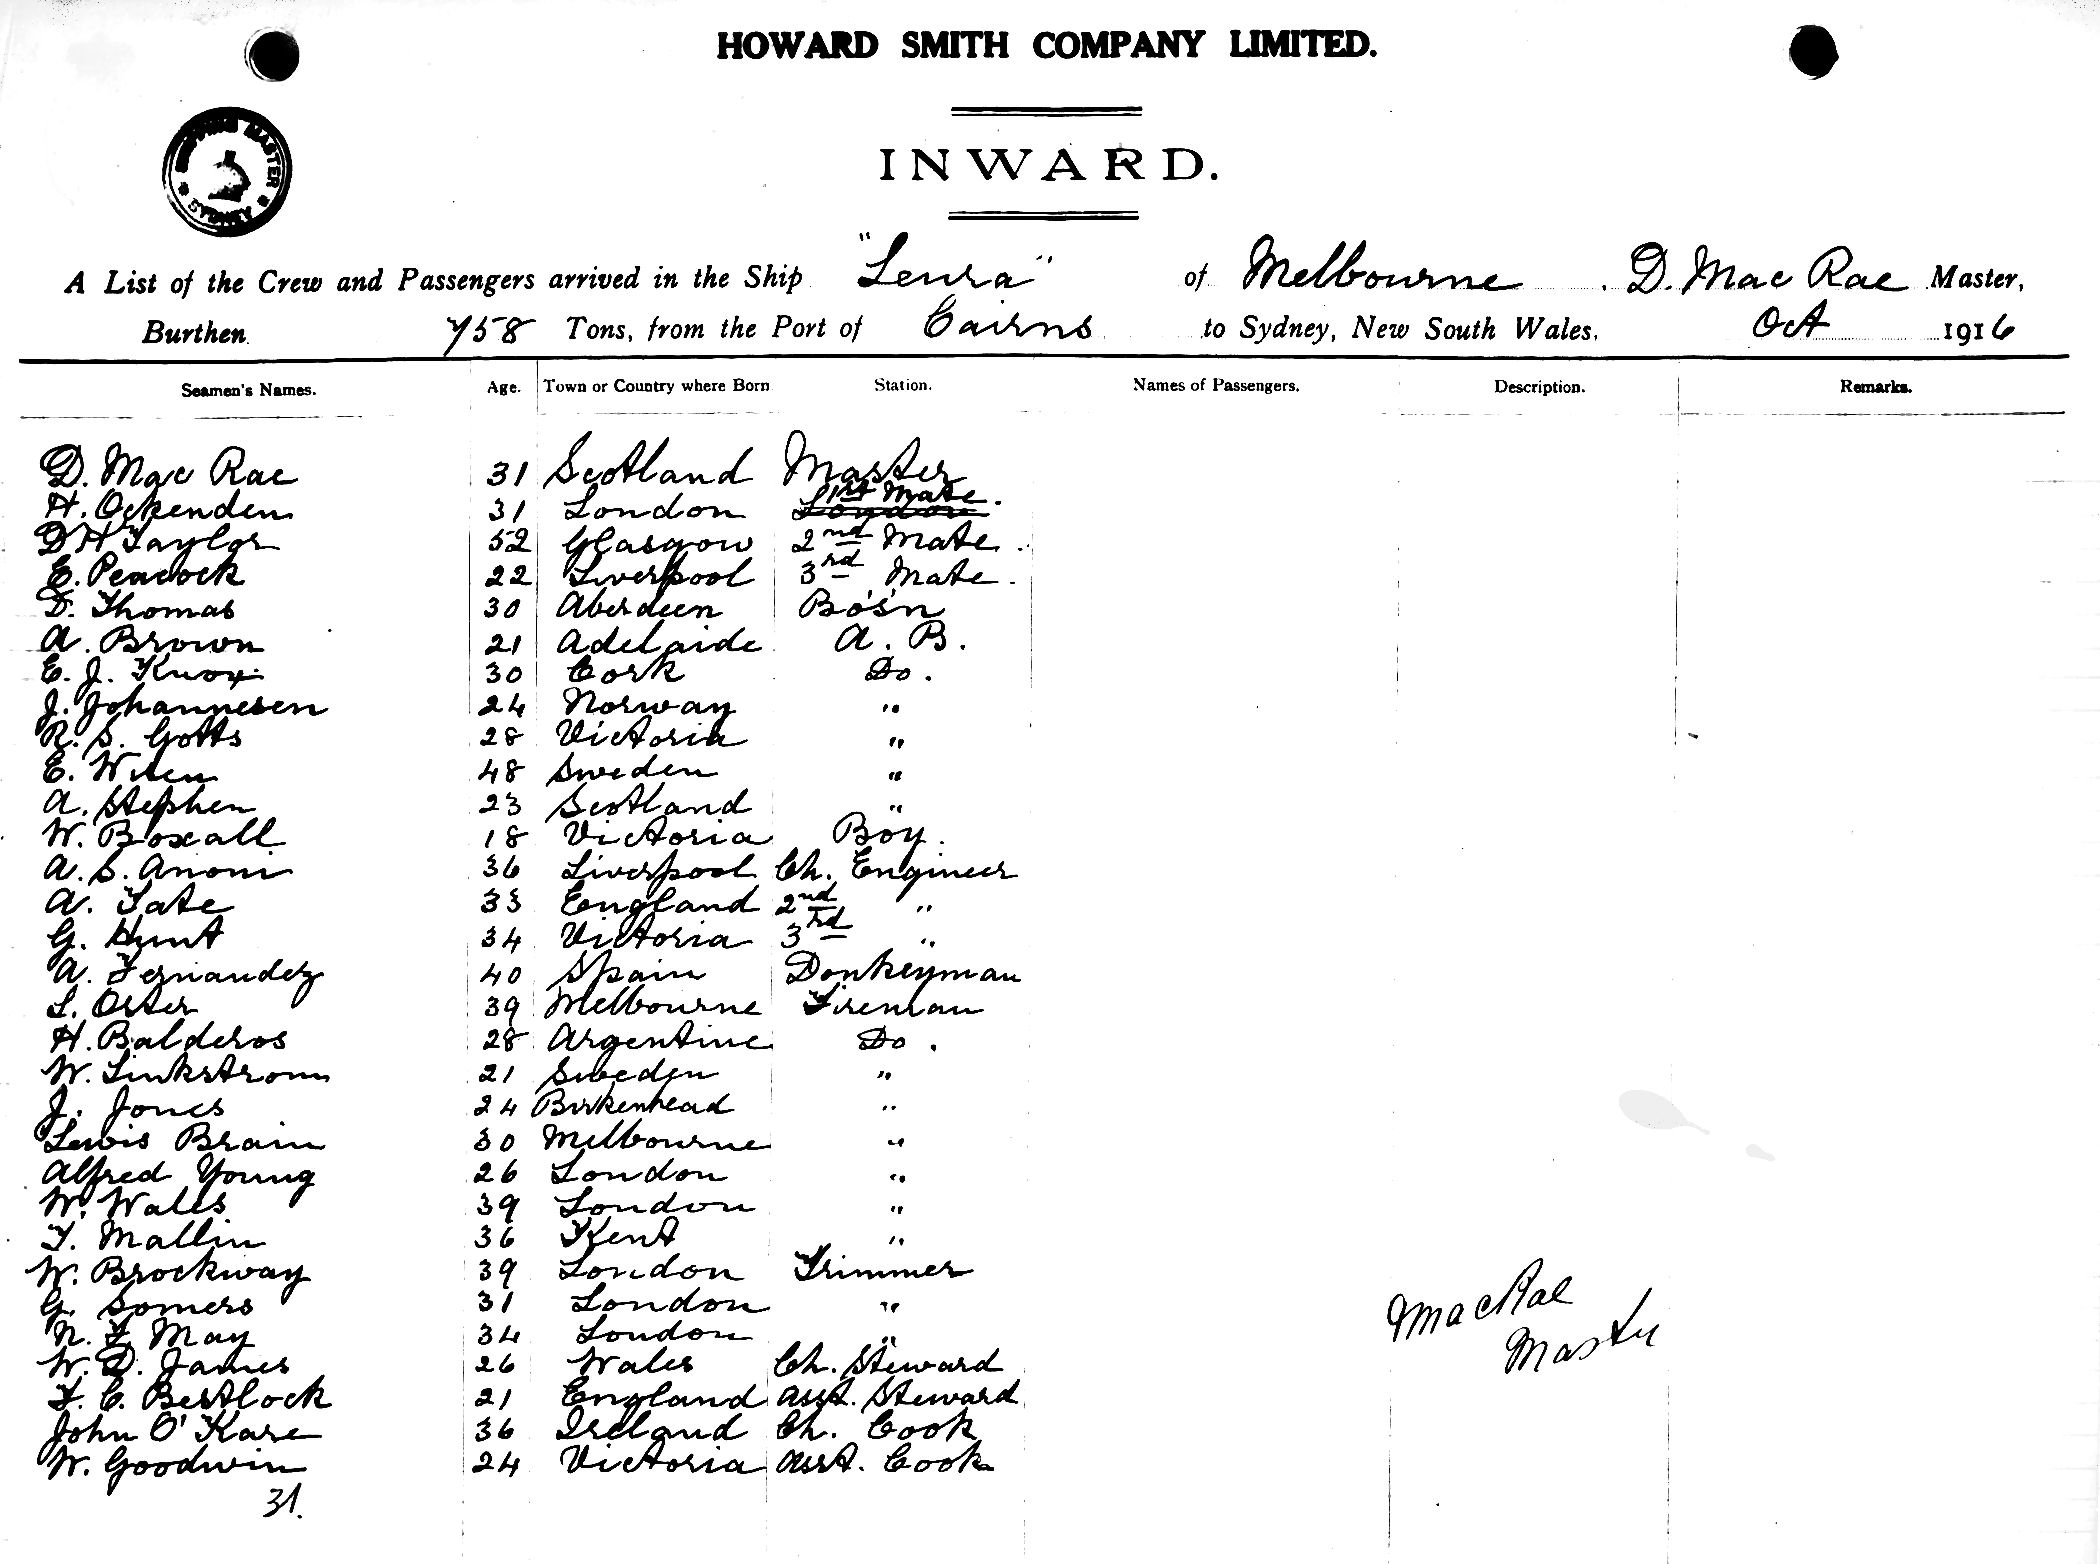 HOWARD SMITH COMPANY LIMITED.
SHIPPING MASTER
SYDNEY
INWARD.
A List of the Crew and Passengers arrived in the Ship "Leura" of Melbourne D. Mac Rae Master,
Burthen 758 Tons, from the Port of Cairns to Sydney, New South Wales, Oct 1916
Seamen's Names. Age. Town or Country where Born Station. Names of Passengers. Description. Remarks.
D. Mac Rae 31 Scotland Master
H. Ockenden 31 London London 1st Mate.
D H Taylor 52 Glasgow 2nd Mate.
E. Peacock 22 Liverpool 3rd Mate.
D. Thomas 30 Aberdeen Bo's'n
A. Brown 21 Adelaide A. B.
E. J. Knox 30 Cork Do.
J. Johannesen 24 Norway "
R. S. Gotts 28 Victoria "
E. Wisen 48 Sweden "
A. Stephen 23 Scotland "
W. Boxall 18 Victoria Boy.
A. S. Anoni 36 Liverpool Ch. Engineer
A. Tate 33 England 2nd "
G. Hunt 34 Victoria 3rd "
A. Fernandez 40 Spain Donkeyman
L. Oster 39 Melbourne Fireman
H. Balderos 28 Argentine Do.
W. Linkstrom 21 Sweden "
J. Jones 24 Birkenhead "
Lewis Brain 30 Melbourne "
Alfred Young 26 London "
W. Wales 39 London "
F. Mallin 36 Kent "
W. Brockway 39 London Trimmer
G. Somers 31 London "
N. F. May 34 London "
W. D. James 26 Wales Ch. Steward
F. C. Bestlock 21 England Asst. Steward
John O'Kare 36 Ireland Ch. Cook
W. Goodwin 24 Victoria Asst. Cook
31.
MacRae
Master